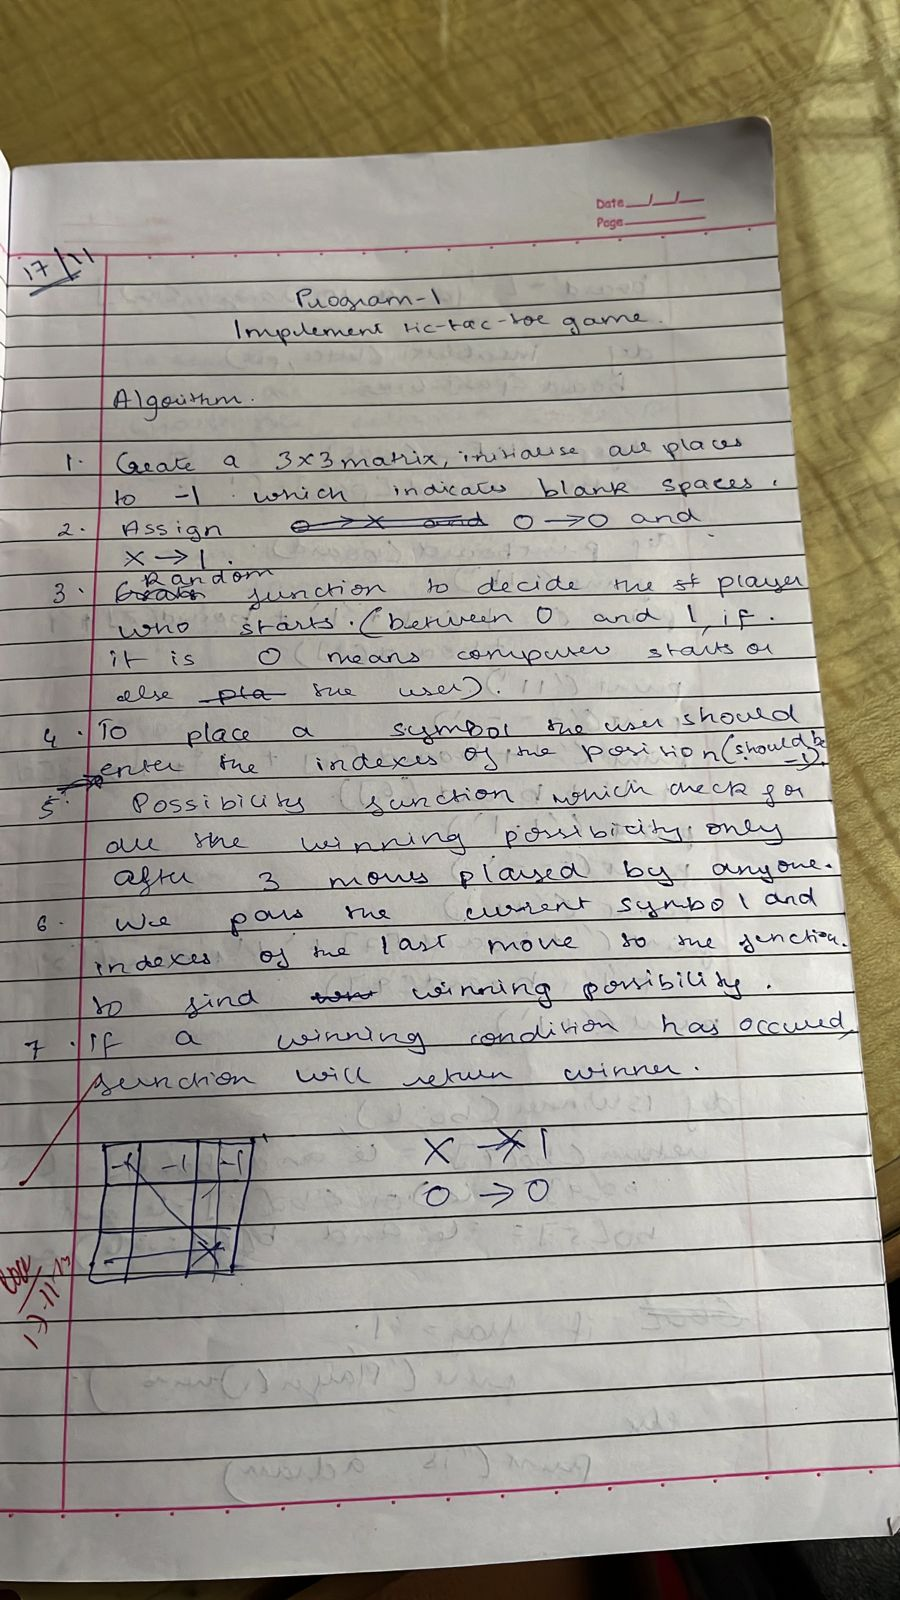 Date __/__/__
Page
17/11
Program-1
Implement tic-tac-toe game.
Algorithm.
1. Create a 3x3 matrix, initialise all places
to -1 which indicates blank spaces.
2. Assign O → 0 and
X → 1.
3. Random function to decide the player
who starts. (between 0 and 1, if
it is 0 means computer starts or
else the user).
4. To place a symbol the user should
enter the indexes of the position (should be
-1)
5. Possibility function which check for
all the winning possibility only
after 3 moves played by anyone.
6. We pass the current symbol and
indexes of the last move to the function
to find winning possibility.
7. If a winning condition has occured,
function will return winner.
-1 -1 -1
X → 1
O → 0
1
X
17-11-23